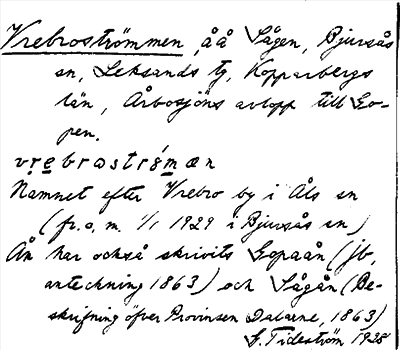 Vrebroströmmen, åå Sågen, Bjursås
sn, Leksands tg, Kopparbergs
län, Årbosjöns avlopp till Go-
pen.
vrebraströmæn
Namnet efter Vrebro by i Åls sn
(fr.o.m. 1/1 1929 i Bjursås sn)
Ån har också skrivits Gopaån (jb,
anteckning 1863) och Sågån (Be-
skrifning öfver Provinsen Dalarne, 1863)
S. Tideström 1938